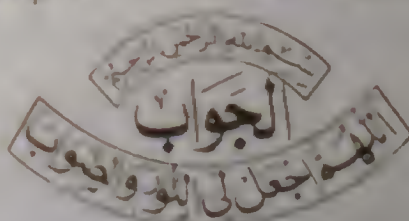 بسم الله الرحمن الرحيم
الجَوَاب
اللهم اجعل لی النور والصواب